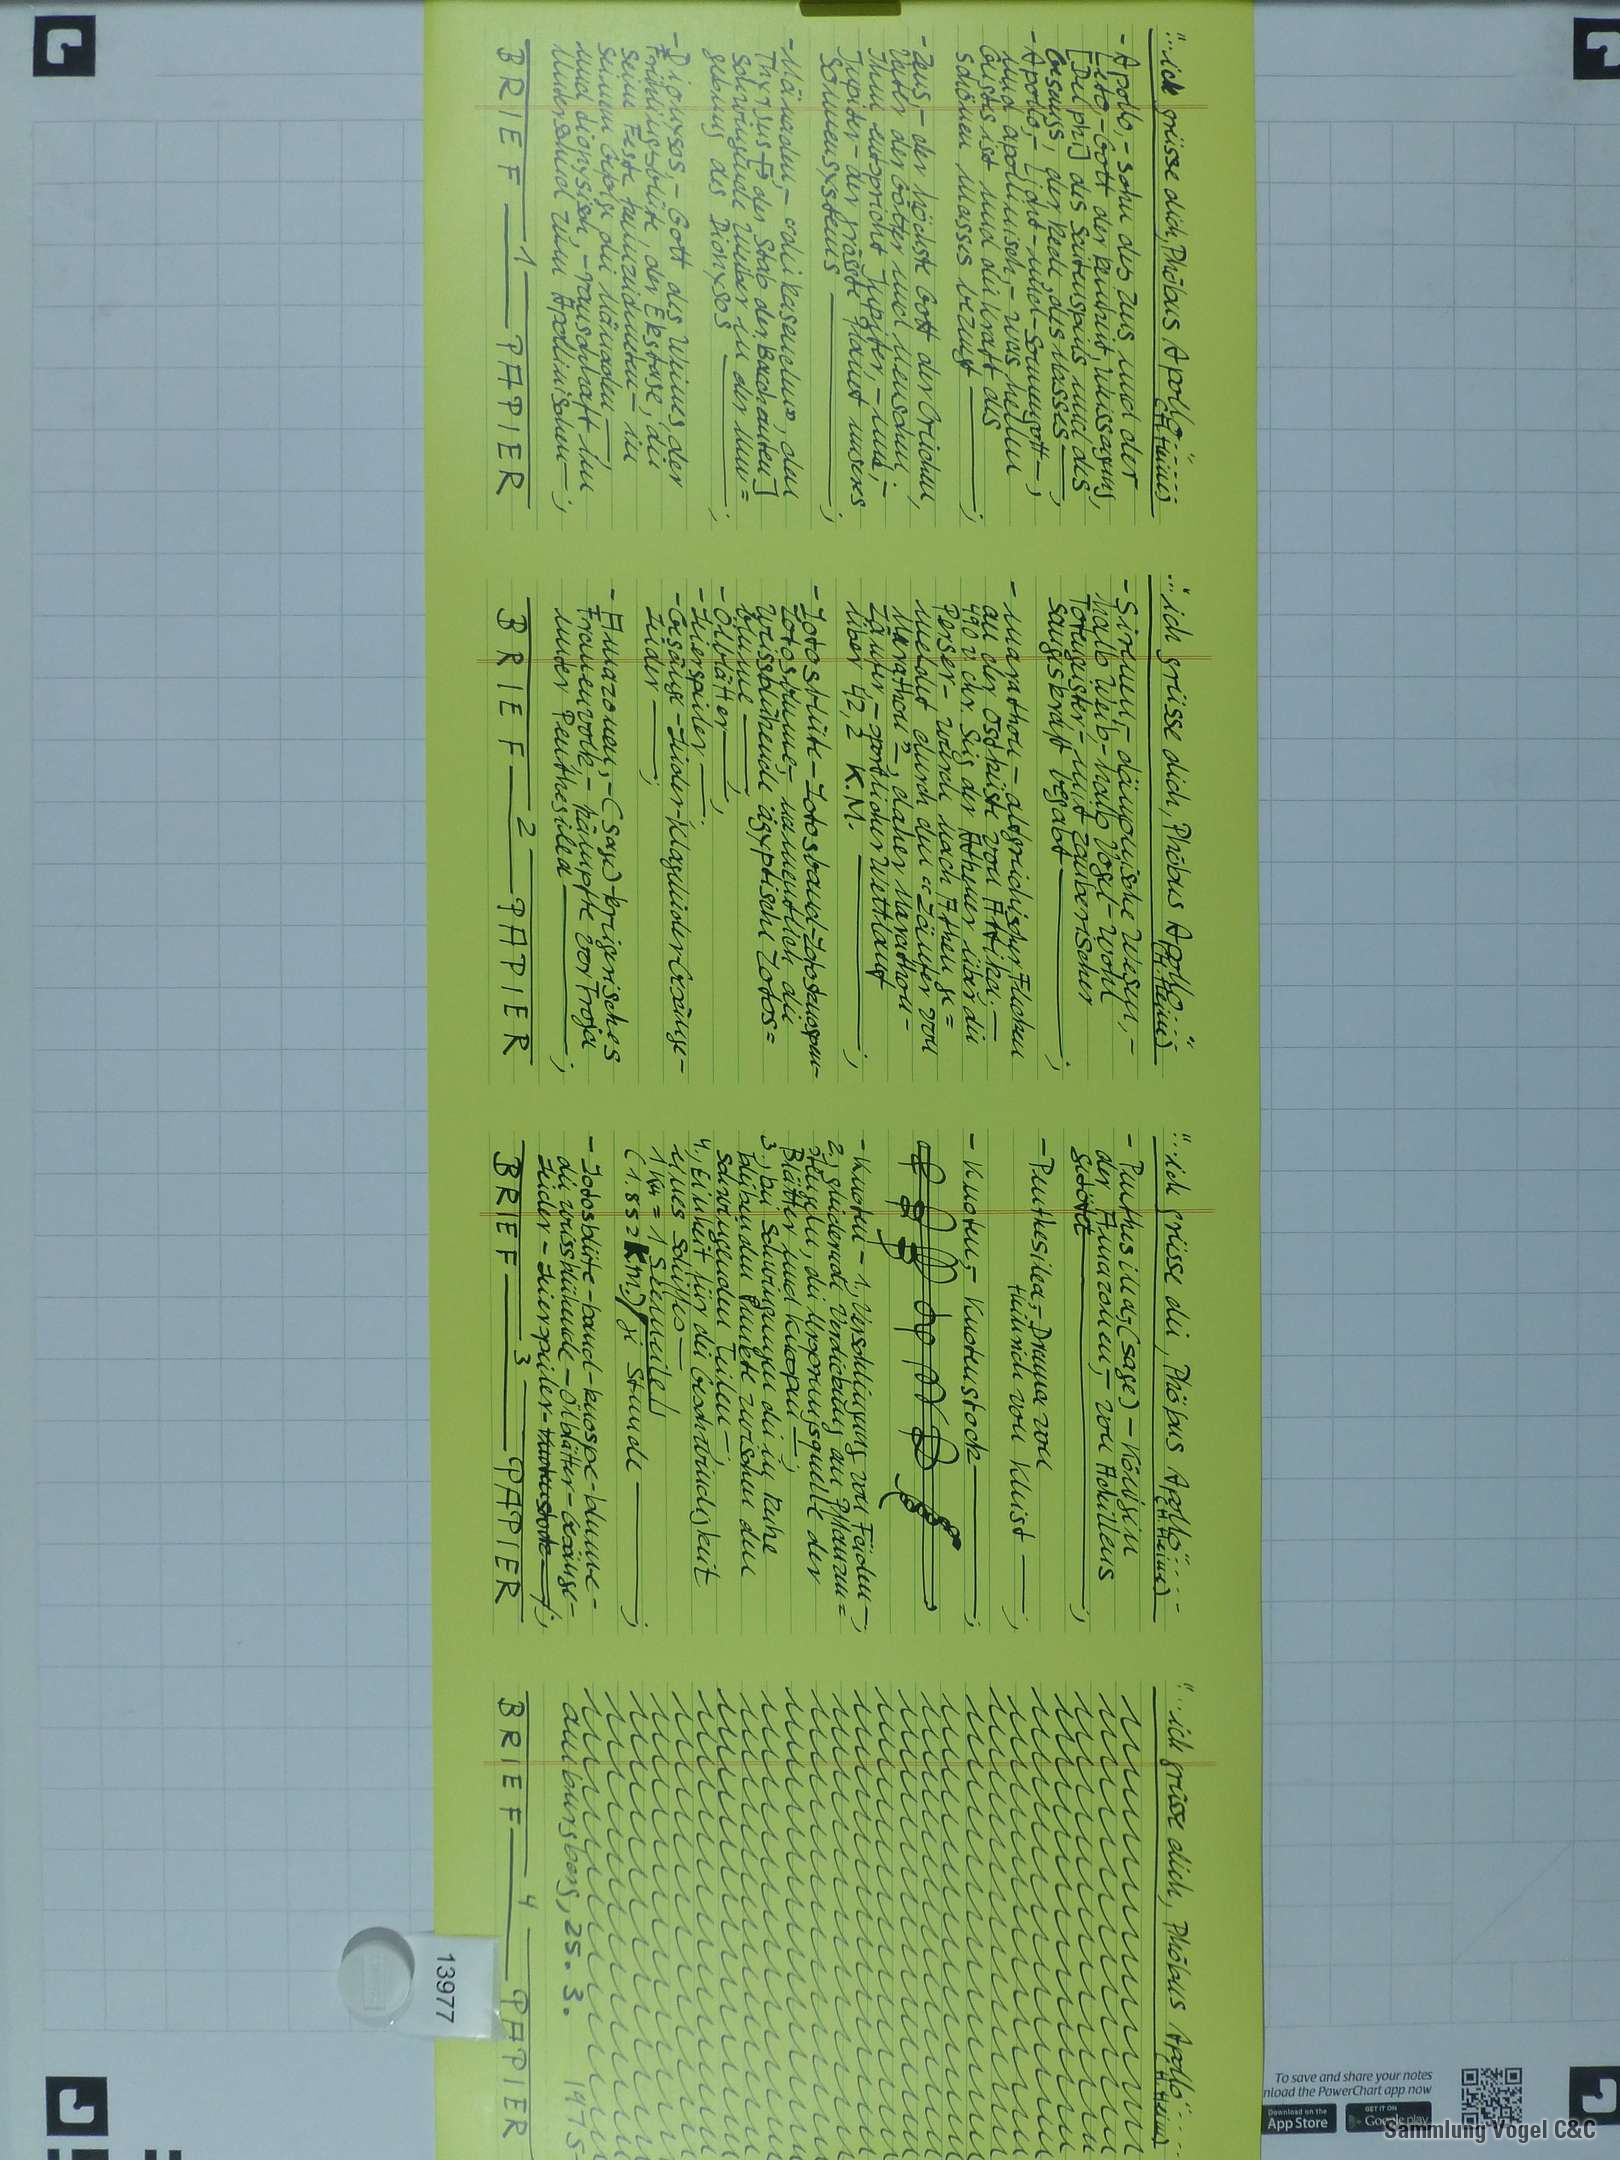 "...ich grüsse dich, Phöbus Apollo"......
(H. Heine)
- Apollo,- Sohn des Zeus und der
Leto,- Gott der Reinheit, Weissagung,
[Delphi] des Saitenspiels und des
Gesangs, der Rede, des Masses —;
- Apollo,- Licht- und Sonnengott —;
und apollinisch,- was hellen
Geistes ist und die Kraft des
schönen Masses bezeugt ———;
- Zeus,- der höchste Gott der Griechen,
Vater der Götter und Menschen,
ihm entspricht Jupiter,- und,-
Jupiter- der grösste Planet unseres
Sonnensystems ———;
- Mänaden,- "die Rasenden", den
Thyrsus [der Stab der Bacchanten]
schwingende Weiber in der Um=
gebung des Dionysos ———;
- Dionysos,- Gott des Weines, der
Frühlingsblüte, der Ekstase, die
seine Feste kennzeichneten — in
seinem Gefolge die Mänaden —;
und dionysisch,- rauschhaft im
Unterschied zum Apollinischen —;
BRIEF — 1 — PAPIER
"...ich grüsse dich, Phöbus Apollo"...
(H. Heine)
- Sirenen,- dämonische Wesen,-
halb Weib- halb Vogel- wohl
Totengeister,- mit zauberischer
Sangeskraft begabt ———;
- Marathon- altgriechischer Flecken
an der Ostküste von Attika.—
490 v. Chr. Sieg der Athener über die
Perser- wurde nach Athen ge=
meldet durch den "Läufer von
Marathon",- daher Marathon-
läufer,- sportlicher Wettlauf
über 42,2 K.M. ———;
- Lotosblüte-Lotosband-Lotosknospe-
Lotosblume,- namentlich die
weissblühende ägyptische Lotos=
blume ———;
- Ölblätter ———;
- Leierspieler ———;
- Gesänge-Lieder-Klagelieder Gesänge-
Lieder ———;
- Amazonen,- (Sage) kriegerisches
Frauenvolk,- kämpfte vor Troja
unter Penthesilea ———;
BRIEF — 2 — PAPIER
"...ich grüsse dich, Phöbus Apollo".....
(H. Heine)
- Penthesilea,- (Sage) - Königin
der Amazonen,- von Achilleus
getötet ———;
- Penthesilea,- Drama von
Heinrich von Kleist ——;
- Knoten,- Knotenstock ———;
- Knoten - 1., Verschlingung von Fäden —;
2., gliedernde Verdickung an Pflanzen=
stengeln, die Ursprungsquelle der
Blätter und Knospen —;
3., bei Schwingungen die in Ruhe
bleibenden Punkte zwischen den
schwingenden Teilen —;
4., Einheit für die Geschwindigkeit
eines Schiffes —
1 Kn = 1 Seemeile
(1.852 km.) je Stunde ———;
- Lotosblüte-band-knospe-blume-
die weissblühende - Ölblätter- Gesänge-
Lieder- Leierspieler- Knotenstock —;
BRIEF — 3 — PAPIER
"...ich grüsse dich, Phöbus Apollo".....
(H. Heine)
25. 3. 1975
BRIEF — 4 — PAPIER
13977
To save and share your notes
nload the PowerChart app now
Download on the
App Store
GET IT ON
Google play
Sammlung Vogel C&C